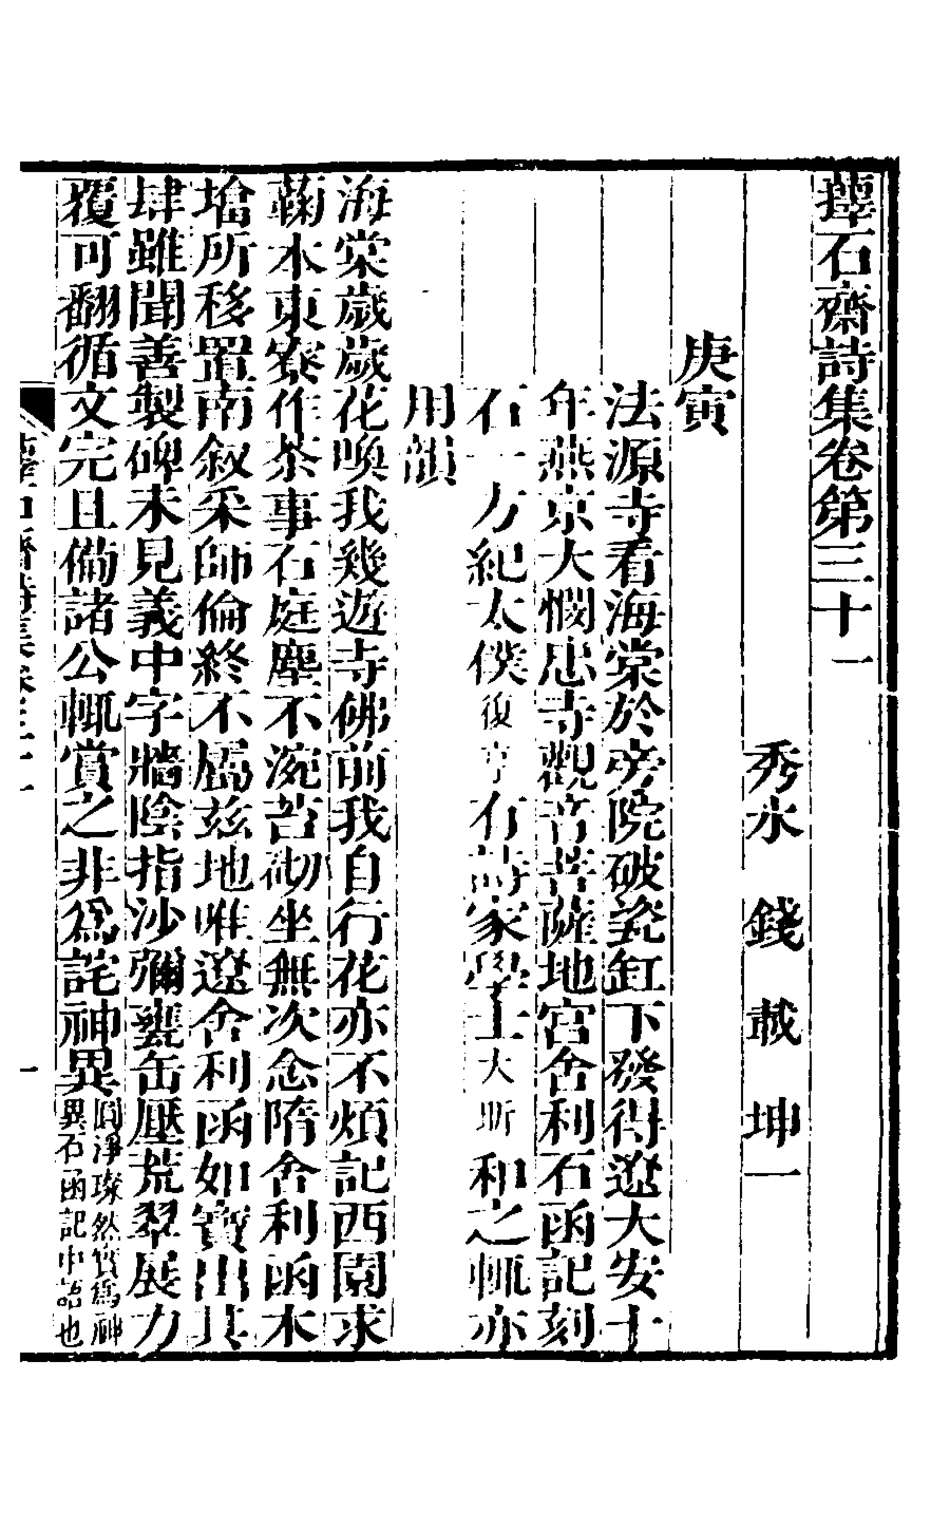 蘀石齋詩集卷第三十一
秀水 錢載 坤一
庚寅
法源寺看海棠於旁院破瓷缸下發得遼大安十
年燕京大憫忠寺觀音菩薩地宮舍利石函記刻
石一方紀太僕復亨有詩家學士大昕和之輒亦
用韻
海棠歲歲花喚我幾遊寺佛前我自行花亦不煩記西園求
蘜本東寮作茶事石庭塵不涴苔砌坐無次念隋舍利函木
墖所移置南敘采師倫終不屬茲地唯遼舍利函如寶出其
肆雖聞善製碑未見義中字牆陰指沙彌甕缶壓荒翠展力
覆可翻循文完且備諸公輒賞之非爲詫神異圓淨璨然實爲神
異石函記中語也
蘀石齋詩集卷三十一
一